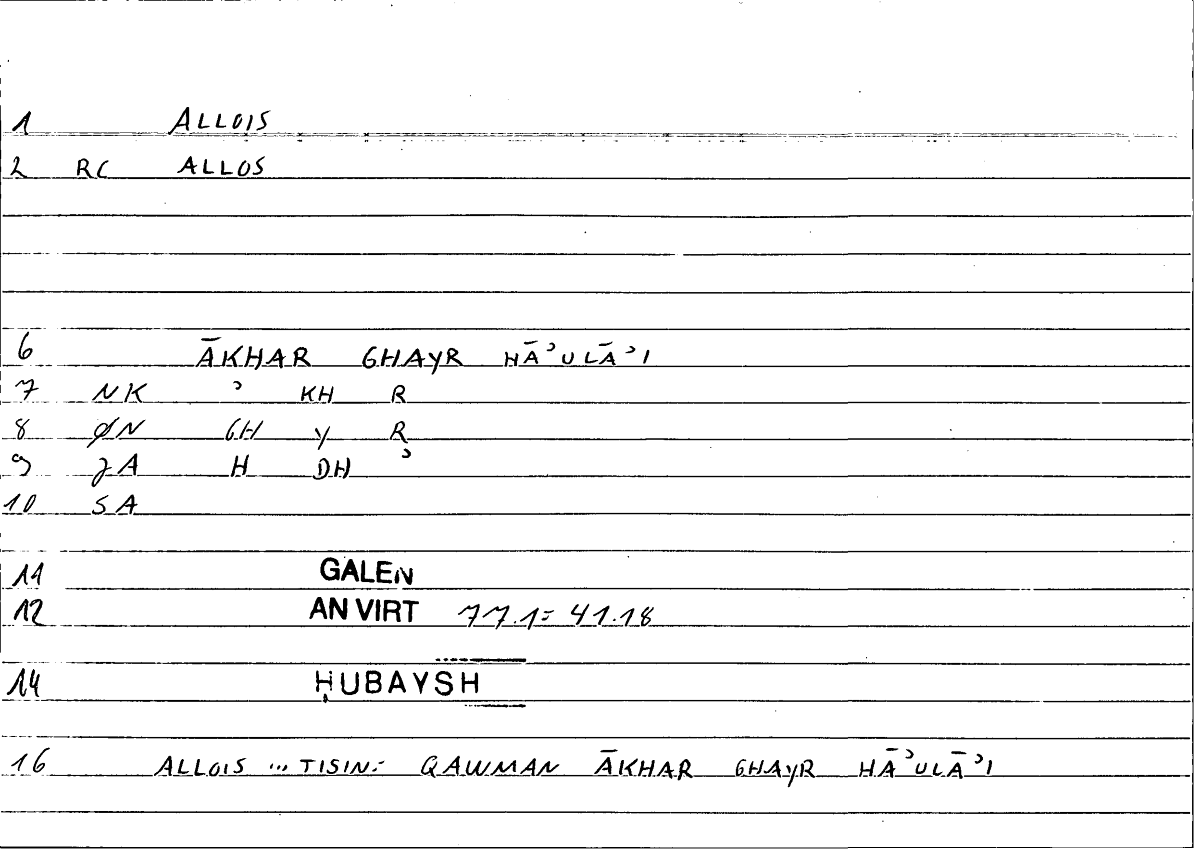 1 ALLOIS
2 RC ALLOS
6 ĀKHAR GHAYR HĀʾULĀʾI
7 NK ʾ KH R
8 ØN GH Y R
9 JA H DH ʾ
10 SA
11 GALEN
12 AN VIRT 77.1= 41.18
14 ḤUBAYSH
16 ALLOIS ... TISIN: QAWMAN ĀKHAR GHAYR HĀʾULĀʾI